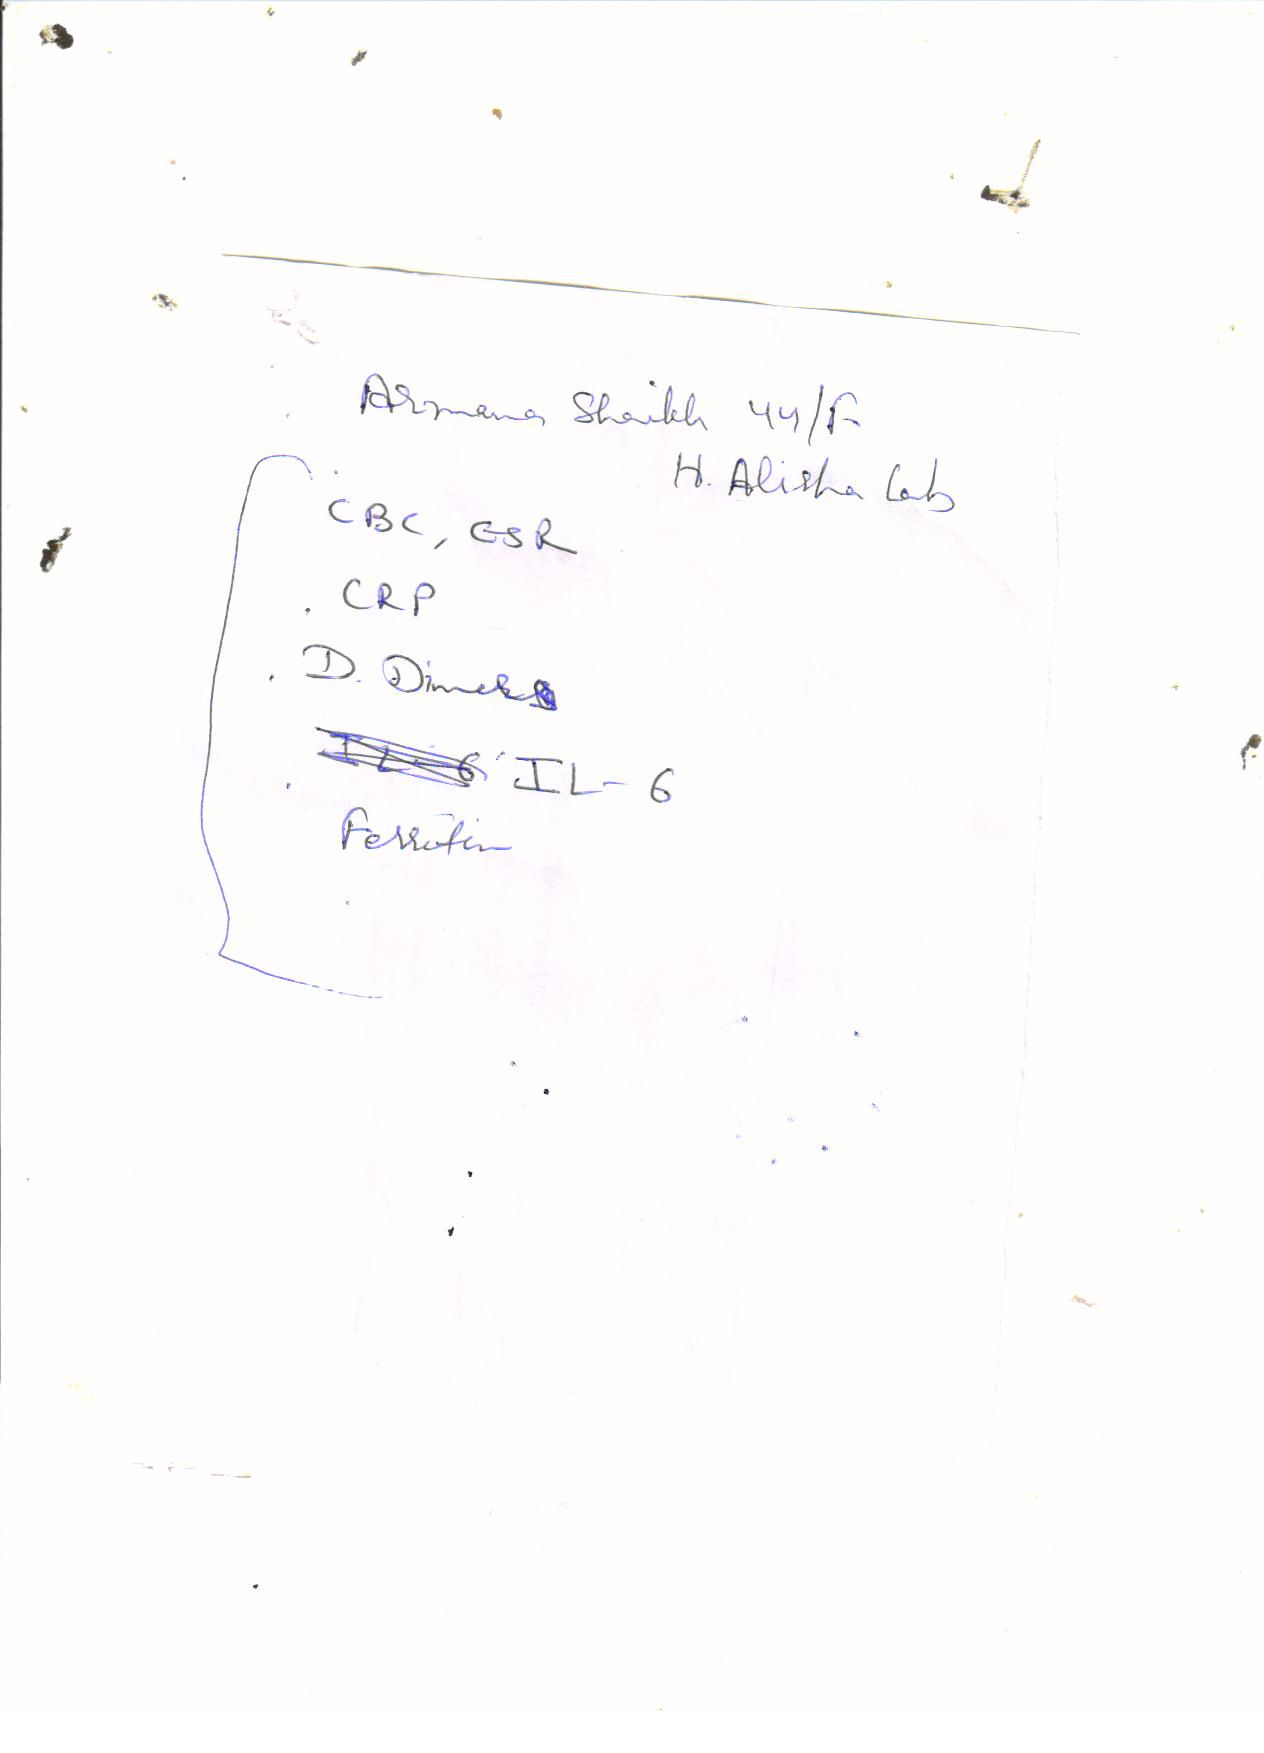 Armana Shaikh 44/F
H. Alisha Lab
CBC, ESR
. CRP
. D. Dimer
IL-6 IL-6
Ferritin